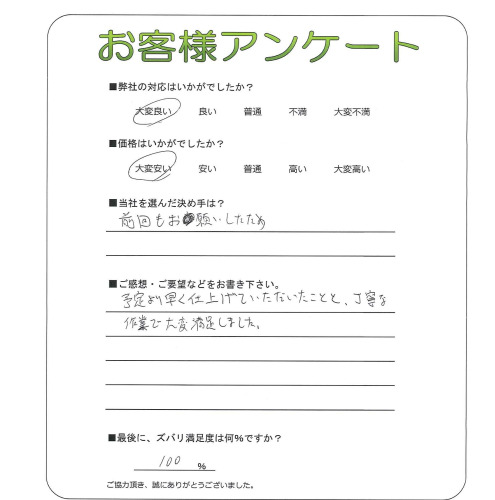 お客様アンケート
■弊社の対応はいかがでしたか？
大変良い 良い 普通 不満 大変不満
■価格はいかがでしたか？
大変安い 安い 普通 高い 大変高い
■当社を選んだ決め手は？
前回もお願いしたため
■ご感想・ご要望などをお書き下さい。
予定より早く仕上げていただいたことと、丁寧な
作業で大変満足しました。
■最後に、ズバリ満足度は何%ですか？
100 %
ご協力頂き、誠にありがとうございました。